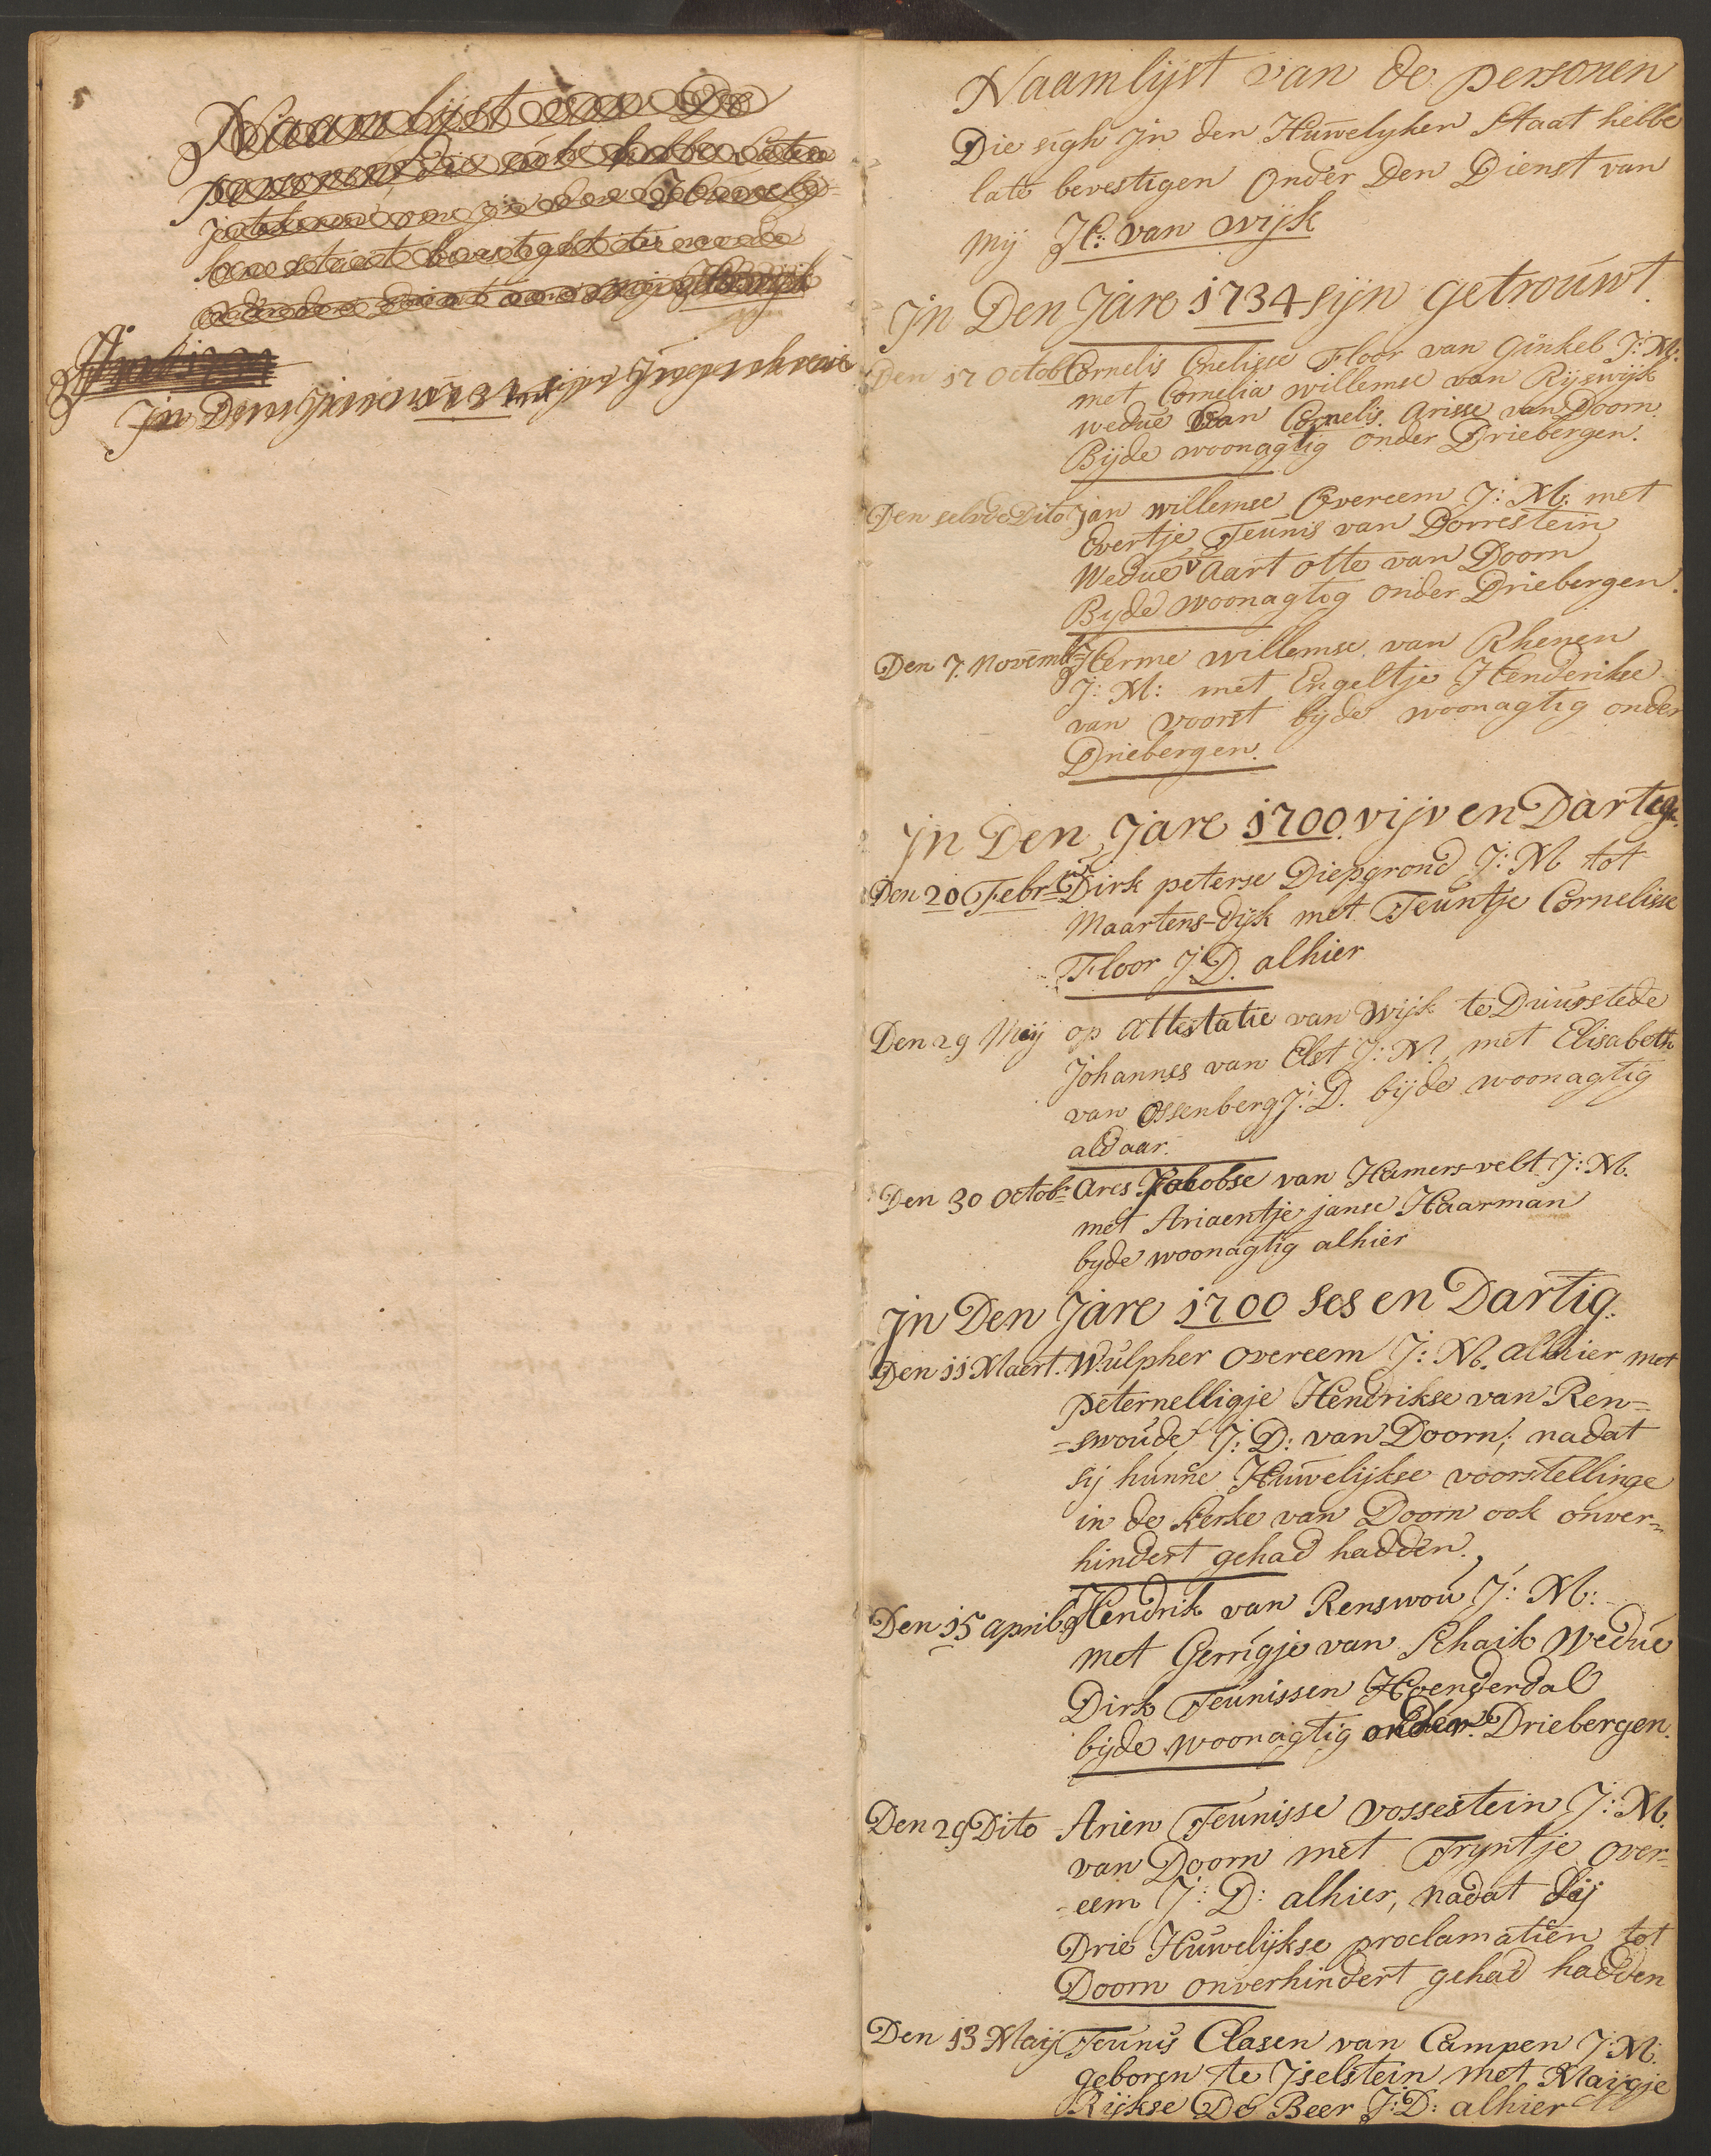 Naamlijst van De
personen Die sich hebbe laten
In Den Jare 1734 sijn Ingeschreve
Naamlijst van de personen
Die sigh Jn den Huwelyken Staat hebbe
late bevestigen Onder Den Dienst van
Mij H: van wijk
Jn Den Jare 1734 sijn getrouwt.
Den 17 Octob Cornelis Cnelisse Floor van Ginkel J: M:
met Cornelia willemse van Rijswijk
wedue van Cornelis Arisse van Doorn.
Bijde woonagtig onder Driebergen.
Den selvde Dito Jan willemse Overeem J: M: met
Evertje Teunis van Dorrestein
Wedue v Aart otte van Doorn
Byde woonagtog onder Driebergen.
Den 7. Novemb: Herme willemse van Rhenen
J: M: met Engeltje Henderikse
van voorst bijde woonagtig onder
Driebergen.
Jn Den Jare 1700 vijv en Dartig.
Den 20 Febr: Dirk peterse Diepgrond J: M tot
Maartens-dijk met Teuntje Cornelisse
Floor J.D. alhier
Den 29 Meij op Attestatie van Wijk te Duurstede
Johannes van Elst J: M. met Elisabeth
van Ossenberg J: D. bijde woonagtig
aldaar.
Den 30 Octob: Ares Jakobse van Hamers-velt J: M.
met Ariaentje janse Haarman
byde woonagtig alhier
Jn Den Jare 1700 ses en Dartig.
Den 11 Maert. Wulpher Overeem J: M. alhier met
peternelligje Hendrikse van Ren=
=swoude J: D: van Doorn; nadat
sij hunne Huwelijkse voorstellinge
in de Kerke van Doorn ook onver=
hindert gehad hadden.
Den 15 April Hendrik van Renswou J: M:
met Gerrigje van Schaik Wedue
Dirk Teunissen Hoenderdal
bijde woonagtig onder Driebergen.
Den 29 Dito Arien Teunisse vossestein J: M.
van Doorn met Tryntje Over=
=eem J: D: alhier, nadat Sij
Drie Huwelijkse proclamatien tot
Doorn onverhindert gehad hadden
Den 13 Maij Teunis Clasen van Campen J: M.
geboren te Jselstein met Maijgje
Rijkse De Beer J: D: alhier